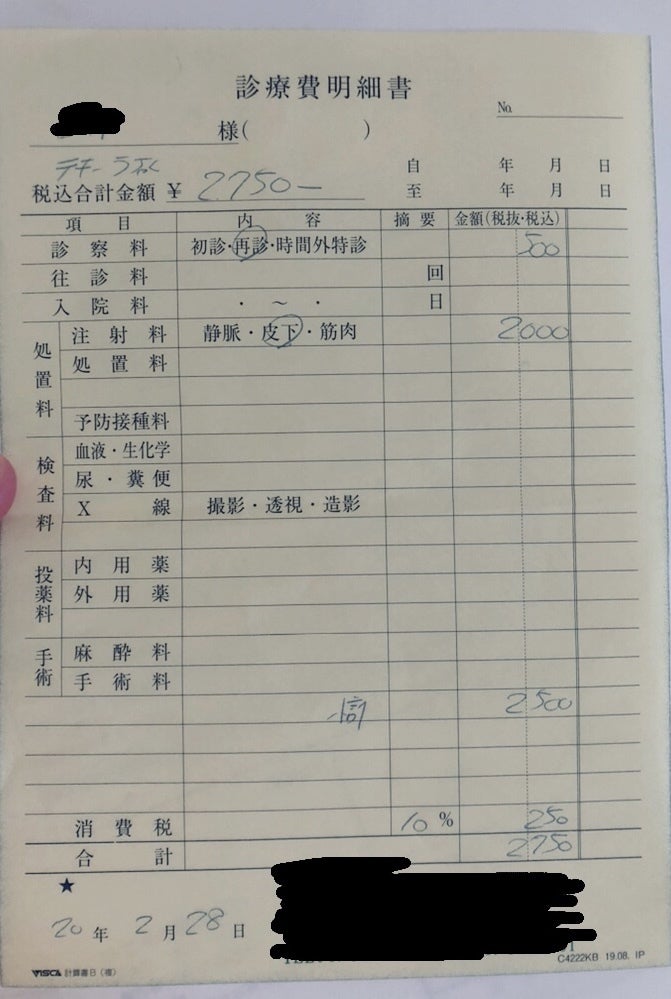 診療費明細書
No.
様( )
テキーラちゃん
自 年 月 日
税込合計金額 ¥ 2750-
至 年 月 日
項目 内容 摘要 金額(税抜・税込)
診察料 初診・再診・時間外特診 500
往診料 回
入院料 ・ ~ ・ 日
処置料
注射料 静脈・皮下・筋肉 2000
処置料
予防接種料
検査料
血液・生化学
尿・糞便
X線 撮影・透視・造影
投薬料
内用薬
外用薬
手術
麻酔料
手術料
小計 2500
消費税 10% 250
合計 2750
★
20年 2月 28日
VISCA 計算書B(複)
C4222KB 19.08. IP